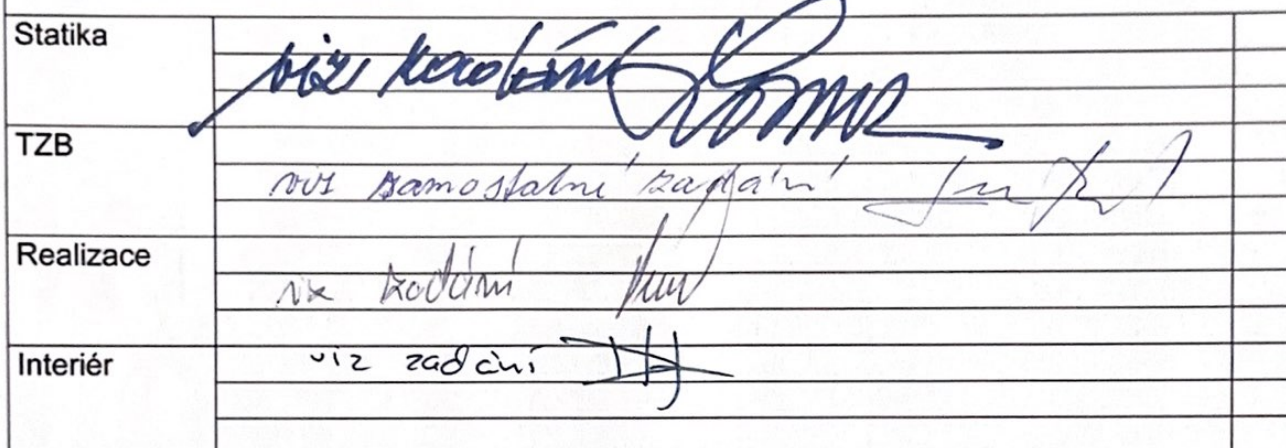 Statika
viz zadání
TZB
viz samostatné zadání
Realizace
viz zadání
Interiér
viz zadání